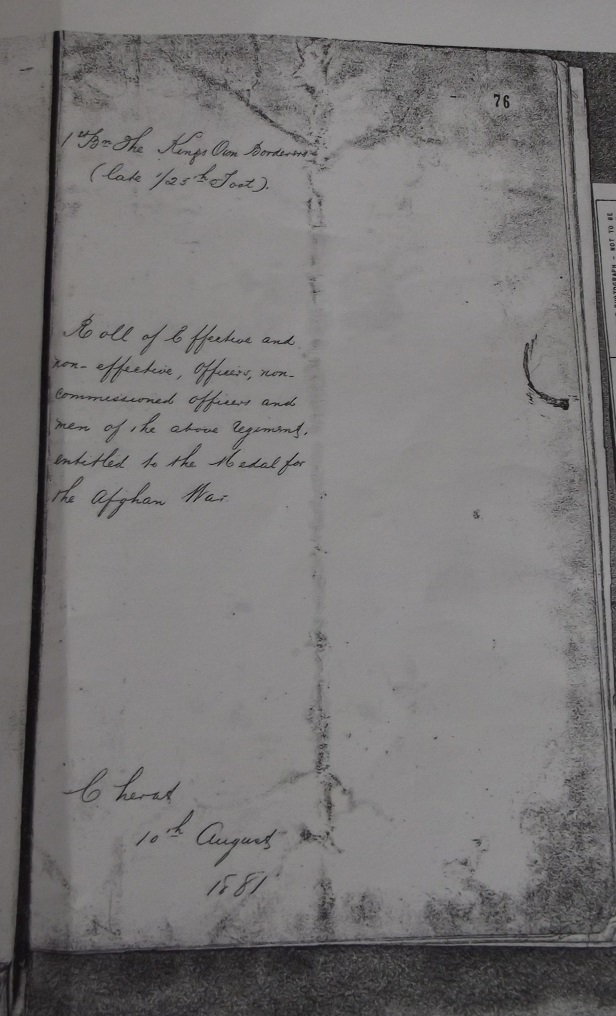 76
1st Bn The Kings Own Borderers
(late 1/25th Foot).
Roll of Effective and
non-effective, Officers, non-
commissioned officers and
men of the above Regiment,
entitled to the Medal for
the Afghan War
Cherat
10th August
1881
PHOTOGRAPH - NOT TO BE